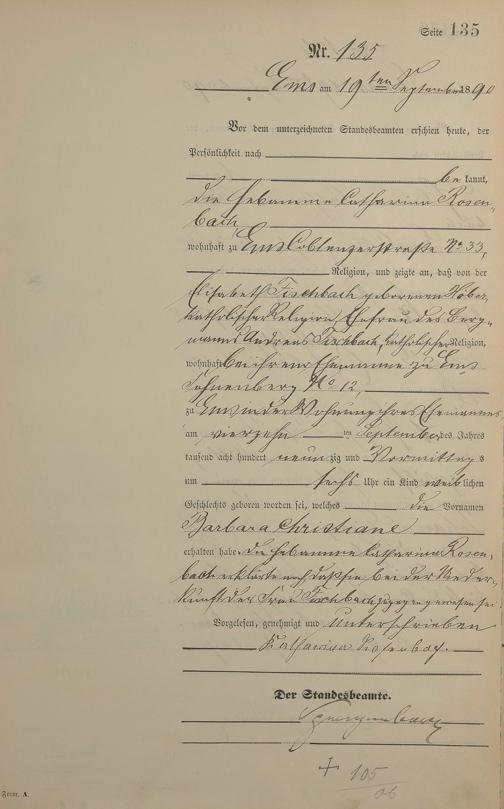 Seite 135
Nr. 135
Ems am 19ten September 1890
Vor dem unterzeichneten Standesbeamten erschien heute, der
Persönlichkeit nach
bekannt,
die Hebamme Catharina Rosen-
bach,
wohnhaft zu Ems Coblenzerstraße No 33,
Religion, und zeigte an, daß von der
Elisabeth Fischbach geborenen Weber,
katholischer Religion, Ehefrau des Berg-
manns Andreas Fischbach, katholischer Religion,
wohnhaft bei ihrem Ehemanne zu Ems
No 12,
zu Ems in der Wohnung ihres Ehemannes
am vierzehn ten September des Jahres
tausend acht hundert neunzig und Vormittags
um sechs Uhr ein Kind weiblichen
Geschlechts geboren worden sei, welches die Vornamen
Barbara Christiane
erhalten habe. Die Hebamme Catharina Rosen-
bach erklärte noch daß sie bei der Nieder-
kunft der Frau Fischbach zugegen gewesen sei.
Vorgelesen, genehmigt und unterschrieben
Katharina Rosenbach.
Der Standesbeamte.
+ 105
06
Form. A.